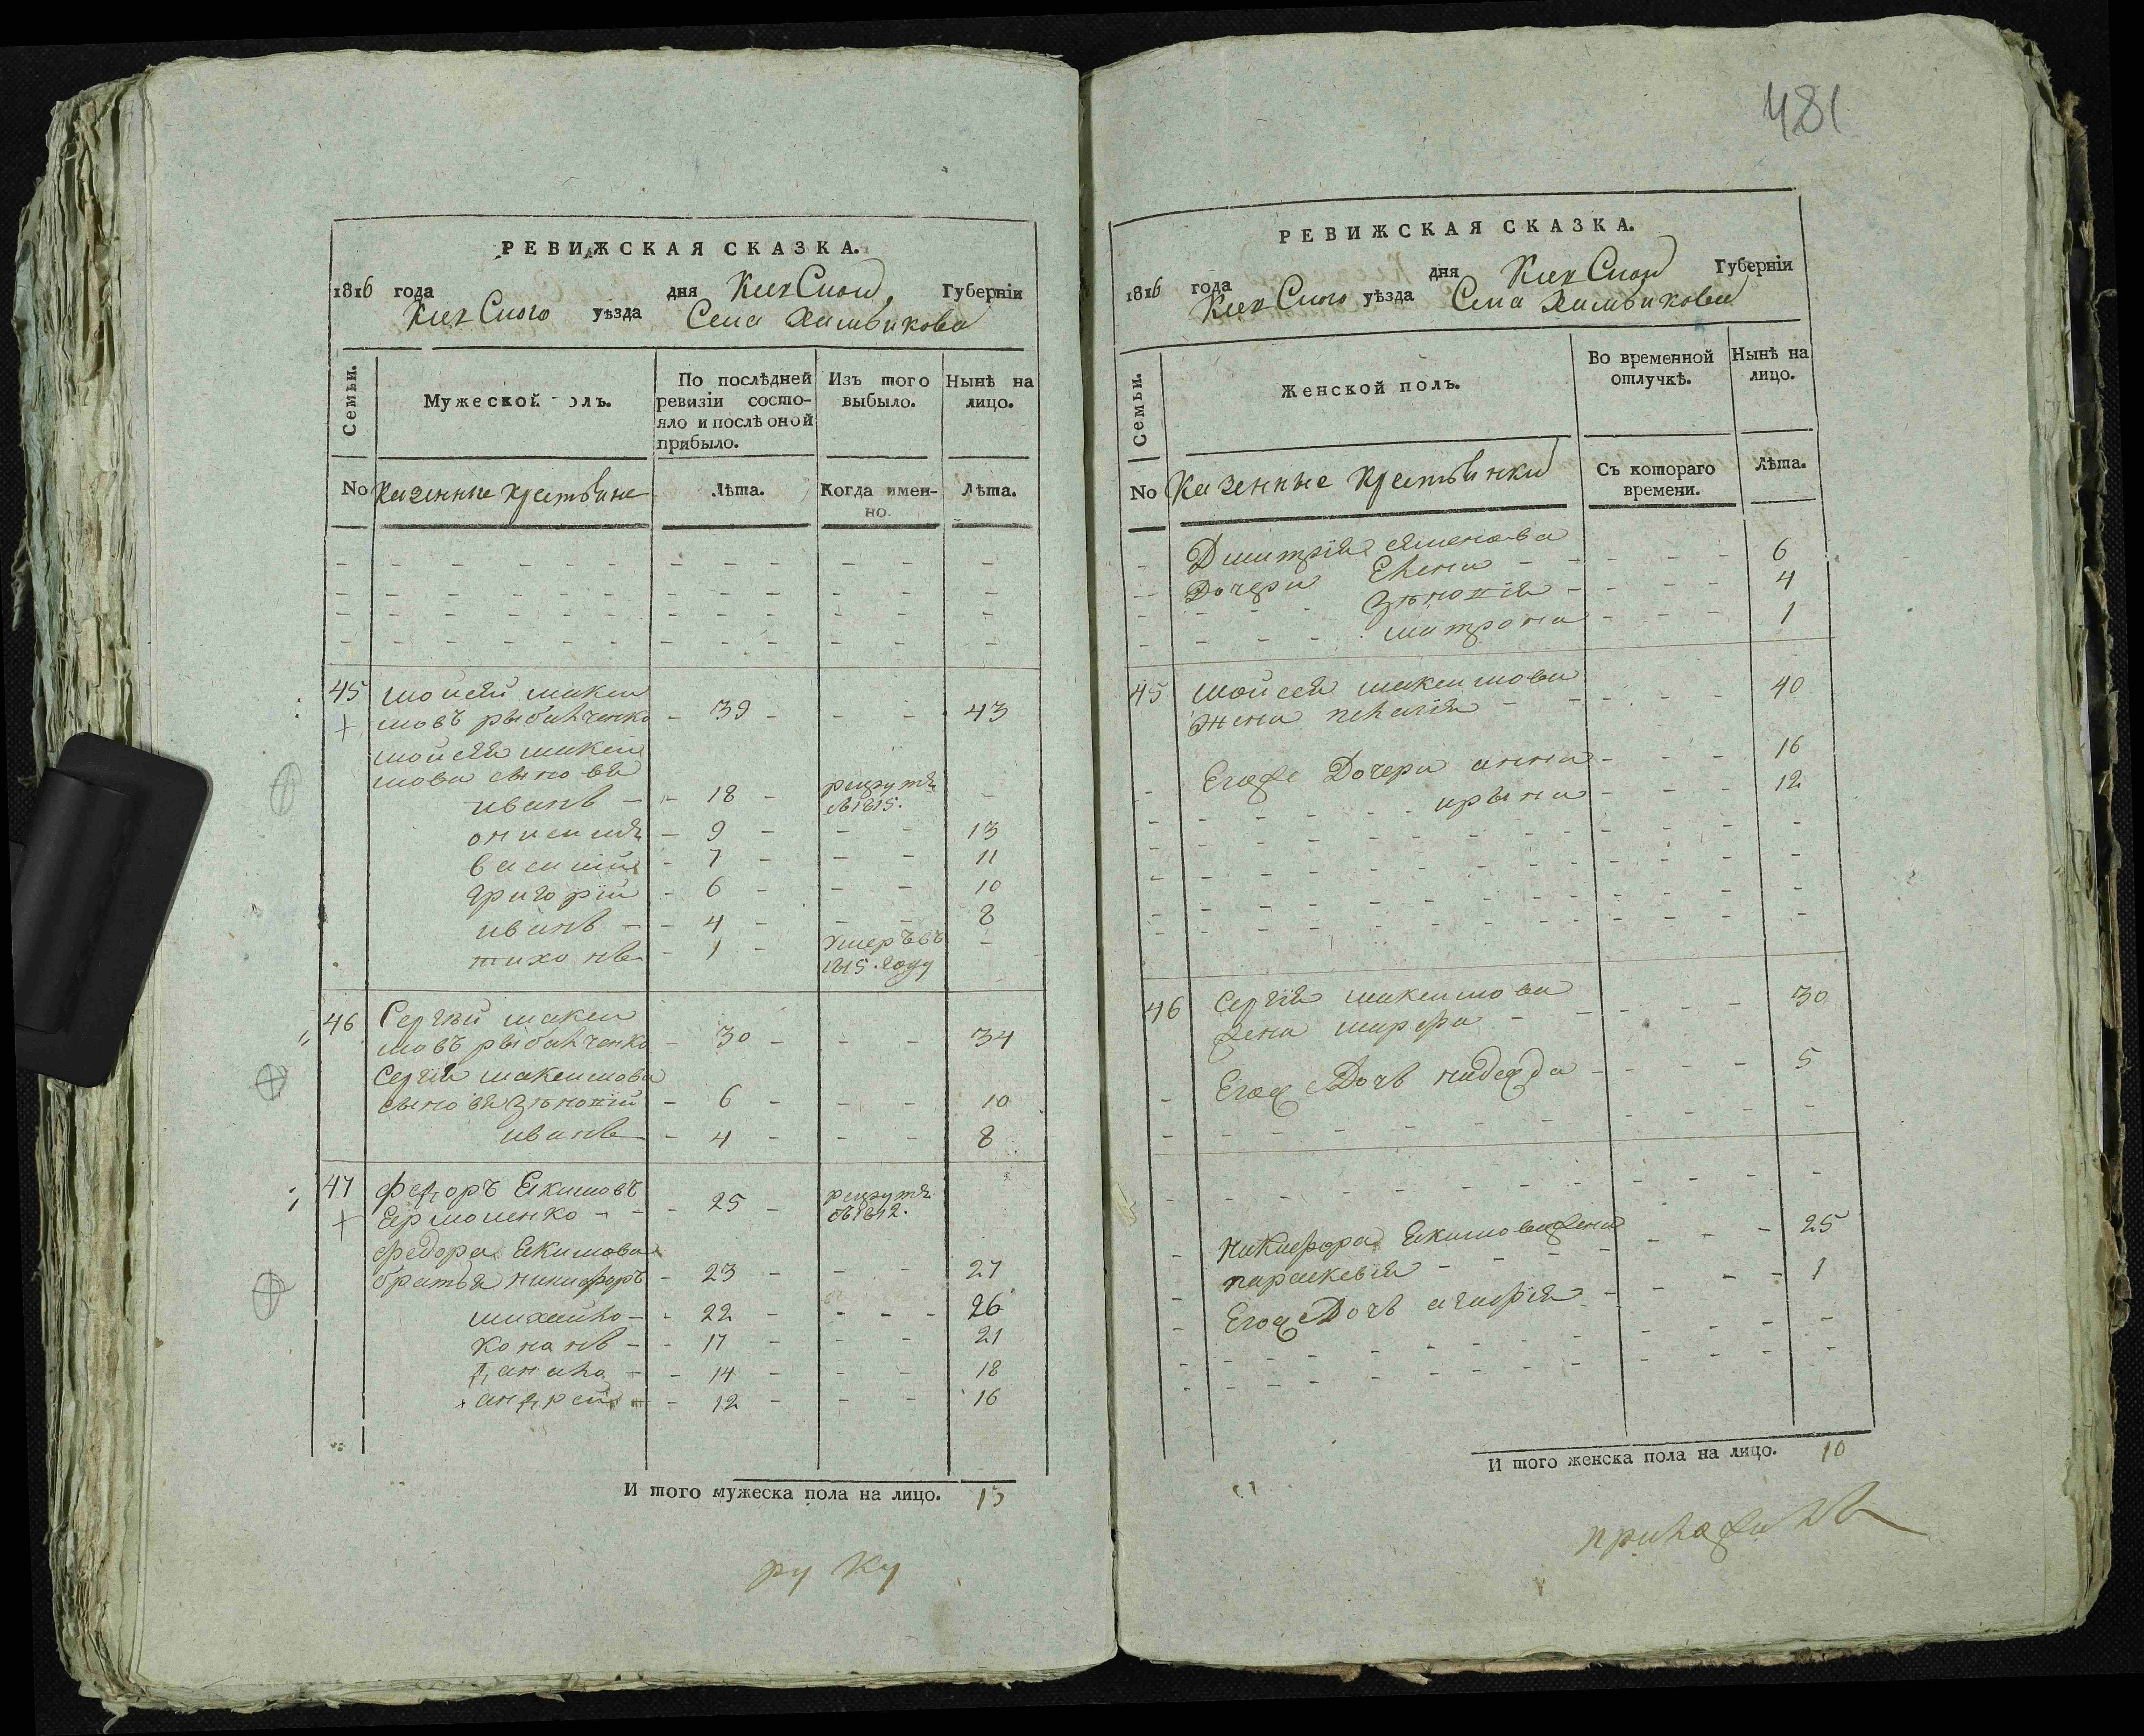 РЕВИЖСКАЯ СКАЗКА.
1816 года дня Киевской Губерніи
Киевского уѣзда Села
Семьи.
Мужеской полъ.
По послѣдней ревизіи состояло и послѣ оной прибыло.
Изъ того выбыло.
Нынѣ на лицо.
No
Казенные крестьяне
Лѣта.
Когда именно.
Лѣта.
45 Мойсей Макси
мовъ рыбалченко - 39 - - - 43
Мойсея Макси
мова сынове
иванъ - - 18 - рекрутъ
в 1815. -
онисимъ - 9 - - - 13
василий - 7 - - - 11
григорій - 6 - - - 10
иванъ - - 4 - - - 8
тихонъ - 1 - умеръ въ -
1815. году
46 Сергѣй макси
мовъ рыбалченко - 30 - - - 34
Сергѣя максимова
сыновя зѣновій - 6 - - - 10
иванъ - 4 - - - 8
47 Федоръ Екимовъ
Ермоленко - - - 25 - рекрутъ
въ 1812.
Федора Екимова
братья никифоръ - 23 - - - 27
михайло - - 22 - - - - 26
кононъ - - 17 - - - 21
данило - - 14 - - - 18
андрей - - 12 - - - 16
И того мужеска пола на лицо. 15
руку
481
РЕВИЖСКАЯ СКАЗКА.
1816 года дня Киевской Губерніи
Киевского уѣзда Села
Семьи.
Женской полъ.
Во временной отлучкѣ.
Нынѣ на лицо.
No
Казенные крестьянки
Съ котораго времени.
Лѣта.
Дмитрія семенова
Дочери Елена - - - - - 6
зѣновія - - - - 4
матрона - - - 1
45 Мойсея максимова
жена пелагія - - - - - 40
Егоже Дочери анна - - - 16
ирына - - - 12
46 Сергѣя максимова
жена марфа - - - - - 30
Егож Дочь надежда - - - - 5
Никифора Екимова жена - - - 25
параскевія - - - - - - 1
Егож Дочь агафія - -
И того женска пола на лицо. 10
приложилъ